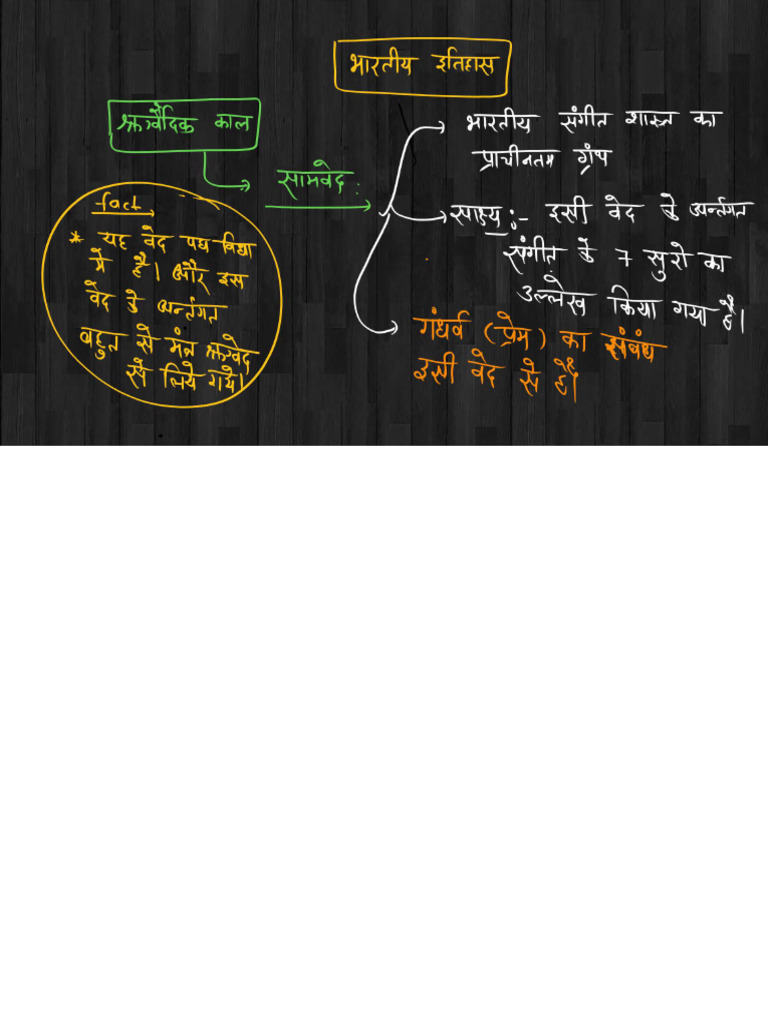 भारतीय इतिहास
ऋग्वैदिक काल
सामवेद :
भारतीय संगीत शास्त्र का
प्राचीनतम ग्रंथ
साक्ष्य :- इसी वेद के अर्न्तगत
संगीत के 7 सुरो का
उल्लेख किया गया है।
गंधर्व (प्रेम) का संबंध
इसी वेद से है।
fact
* यह वेद पद्य विद्या
मे है। और इस
वेद के अर्न्तगत
बहुत से मंत्र ऋग्वेद
से लिये गये।